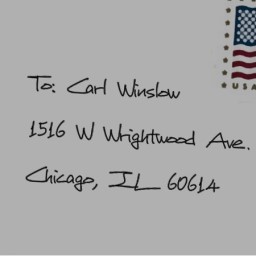 To: Carl Winslow
1516 W Wrightwood Ave.
Chicago, IL 60614
USA